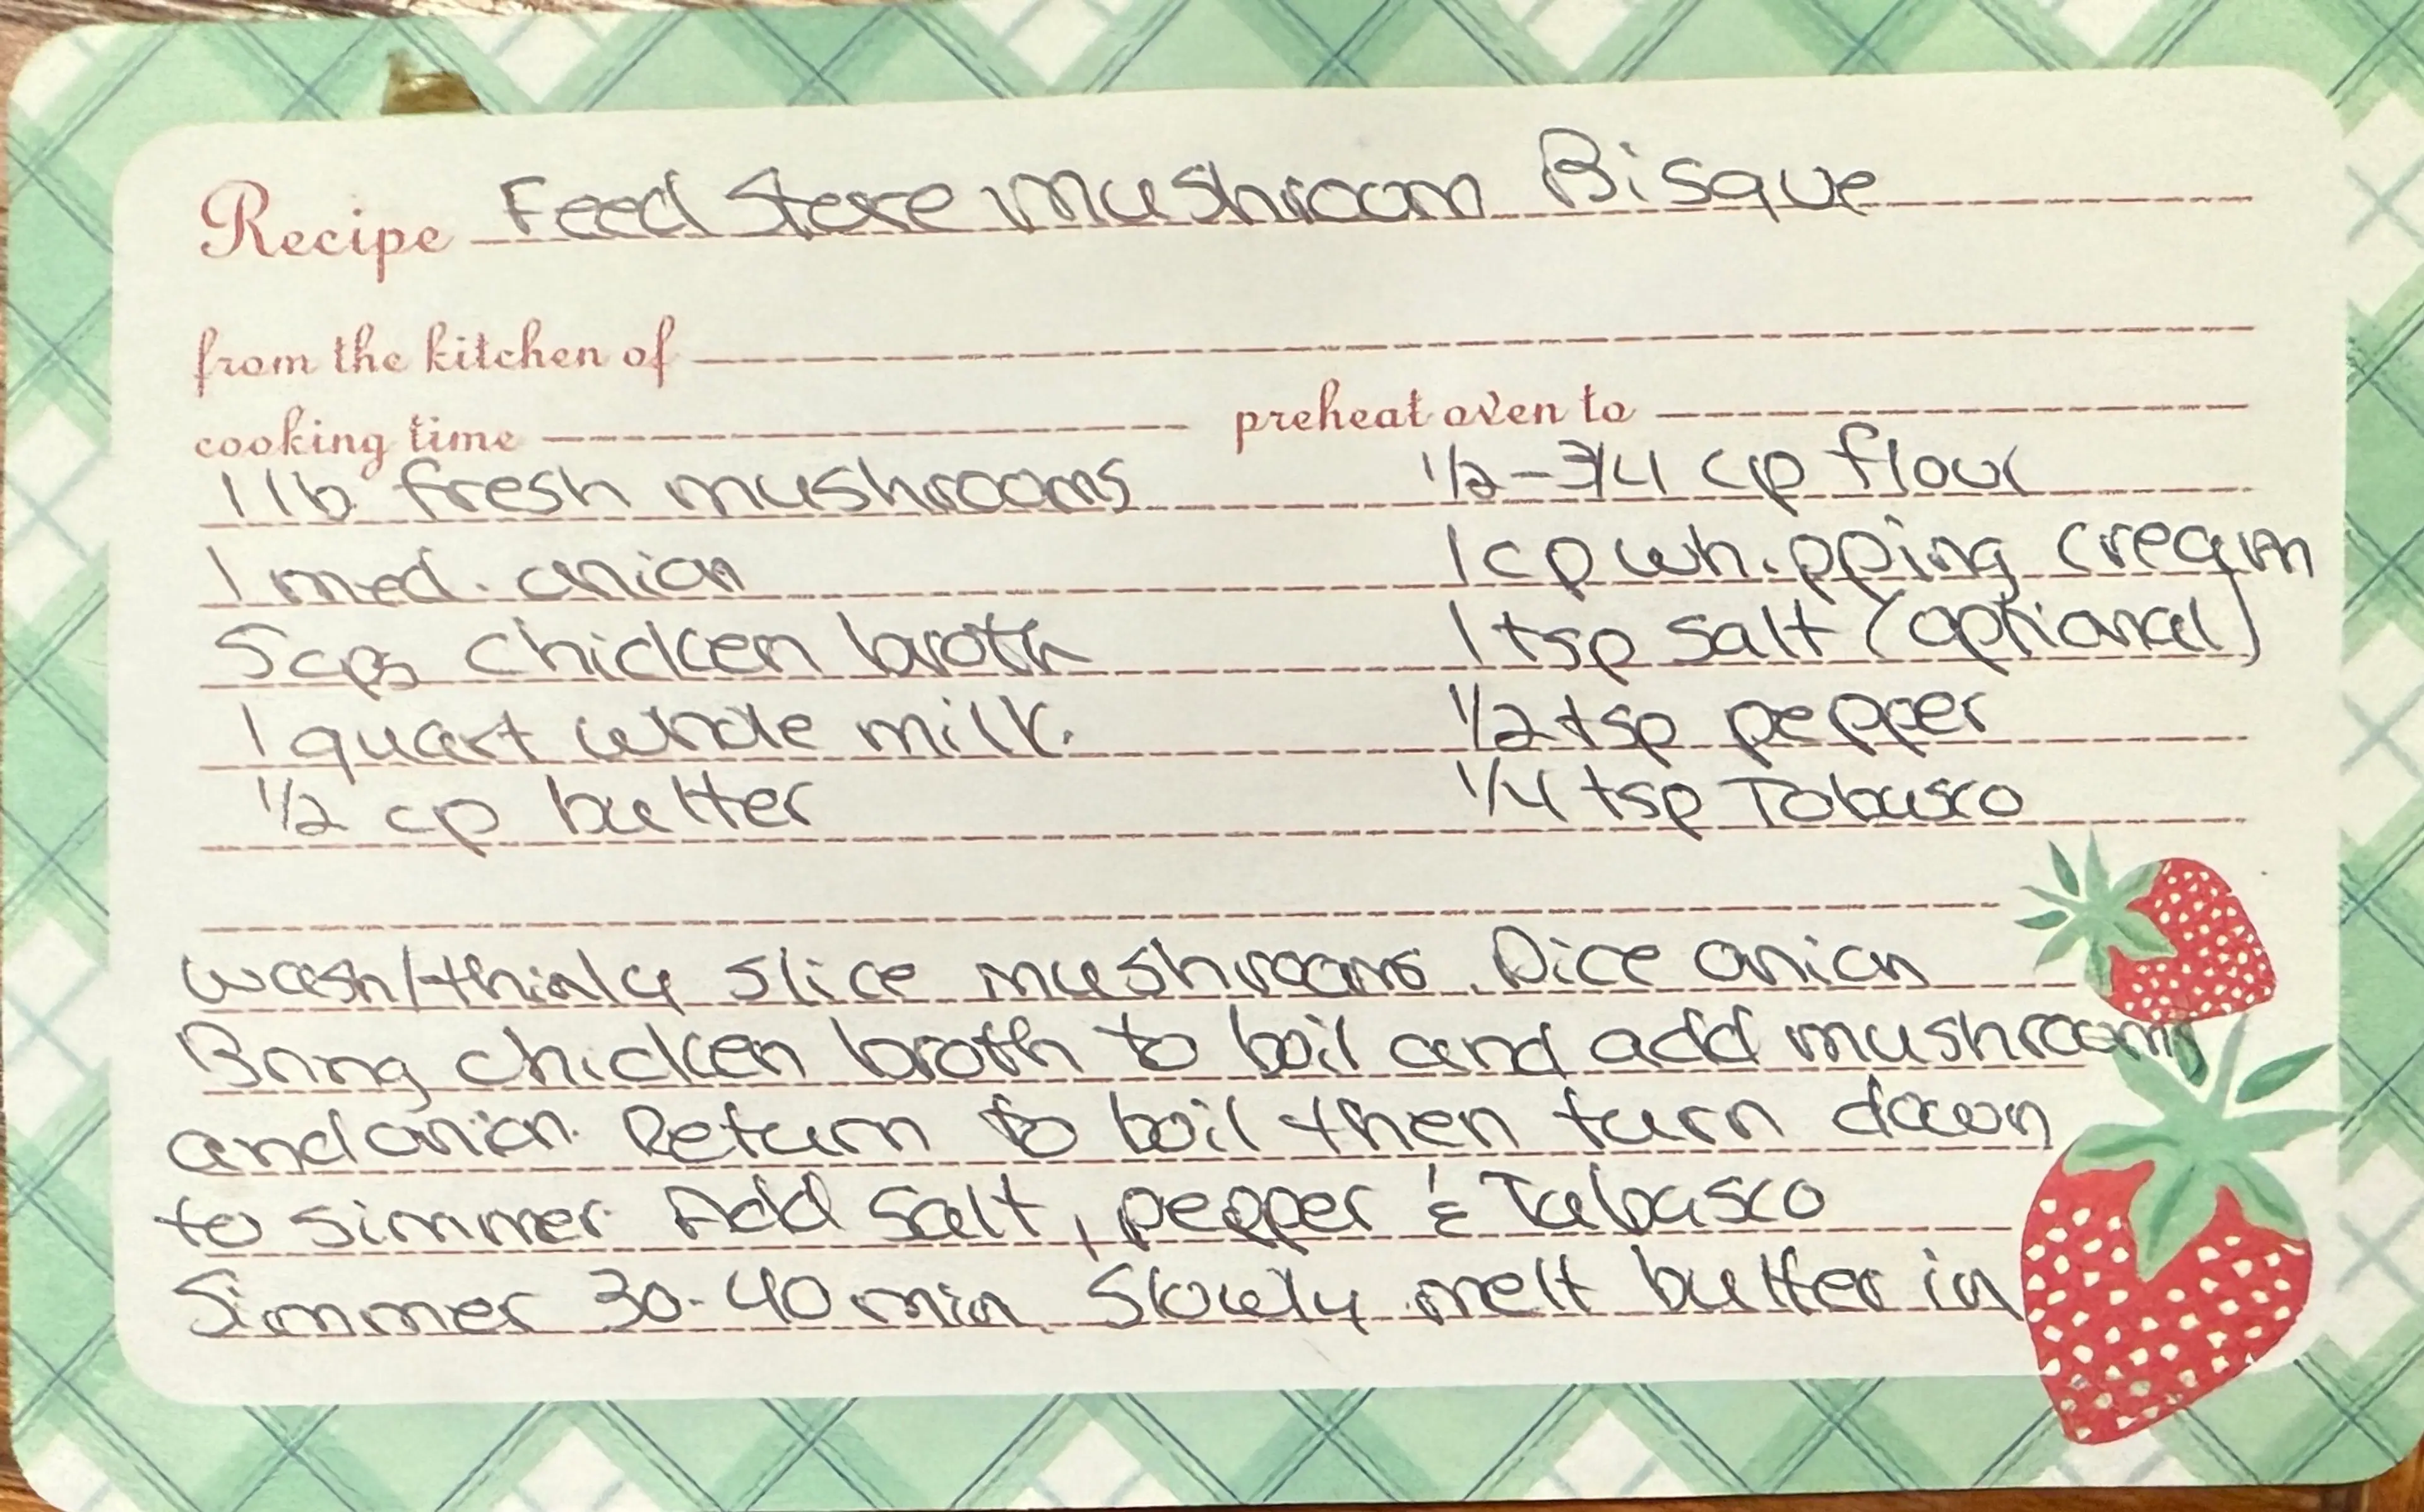 Recipe Feed Store Mushroom Bisque
from the kitchen of
cooking time preheat oven to
1 lb fresh mushrooms 1/2-3/4 cp flour
1 med. onion 1 cp whipping cream
5 cps chicken broth 1 tsp salt (optional)
1 quart whole milk. 1/2 tsp pepper
1/2 cp butter 1/4 tsp Tobasco
wash/thinly slice mushrooms. Dice onion
Bring chicken broth to boil and add mushrooms
and onion. Return to boil then turn down
to simmer. Add salt, pepper & Tabasco
Simmer 30-40 min. Slowly melt butter in